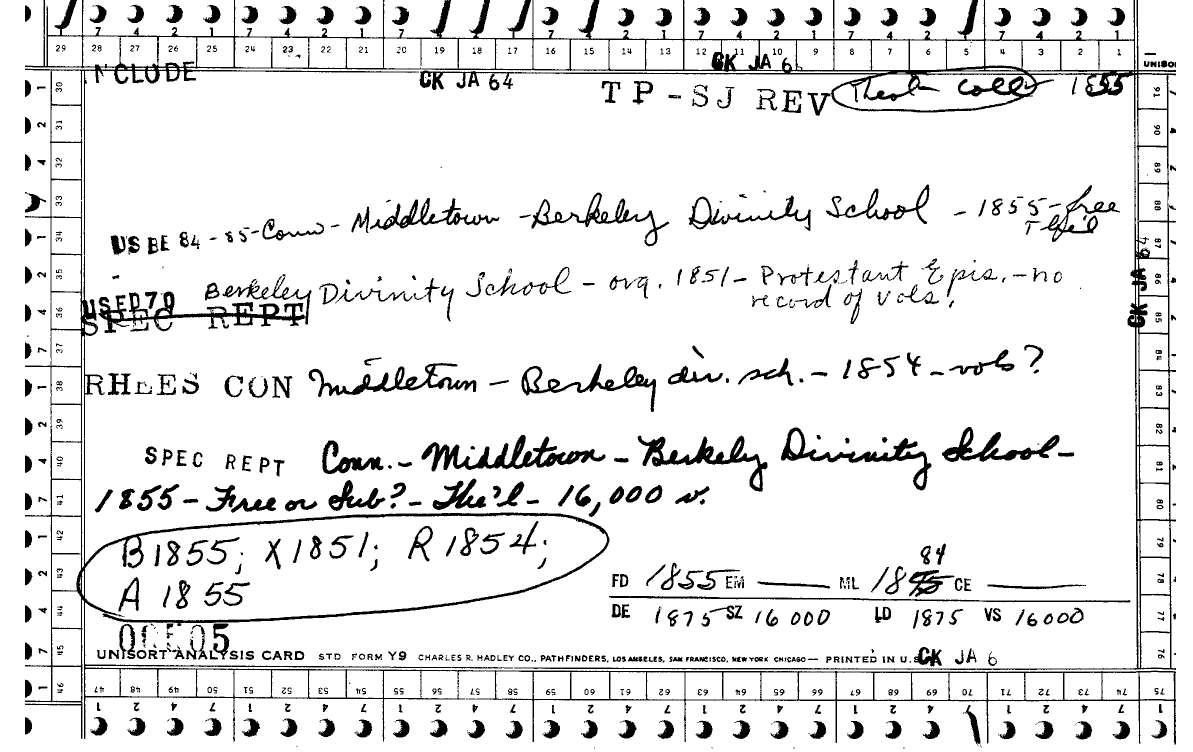 7 4 2 1 7 4 2 1 7 4 2 1 7 4 2 1 7 4 2 1 7 4 2 1
29 28 27 26 25 24 23 22 21 20 19 18 17 16 15 14 13 12 11 10 9 8 7 6 5 4 3 2 1
NCLUDE CK JA 64 CK JA 6 UNISOR
TP-SJ REV Theol Coll 1855
US BE 84-85-Conn - Middletown - Berkeley Divinity School - 1855 - free
US ED 70 Berkeley Divinity School - org. 1851 - Protestant Epis. - no
record of vols.
SPEC REPT
RHEES CON Middletown - Berkeley div. sch. - 1854 - vols?
SPEC REPT Conn. - Middletown - Berkeley Divinity School -
1855 - Free or Sub? - The'l - 16,000 v.
B 1855; X 1851; R 1854;
A 1855
84
FD 1855 EM ML 18 CE
DE 1875 SZ 16 000 LD 1875 VS 16000
UNISORT ANALYSIS CARD STD FORM Y9 CHARLES R. HADLEY CO., PATHFINDERS, LOS ANGELES, SAN FRANCISCO, NEW YORK CHICAGO — PRINTED IN U.S. CK JA 6
46 47 48 49 50 51 52 53 54 55 56 57 58 59 60 61 62 63 64 65 66 67 68 69 70 71 72 73 74 75
1 2 4 7 1 2 4 7 1 2 4 7 1 2 4 7 1 2 4 7 1 2 4 7 1 2 4 7 1